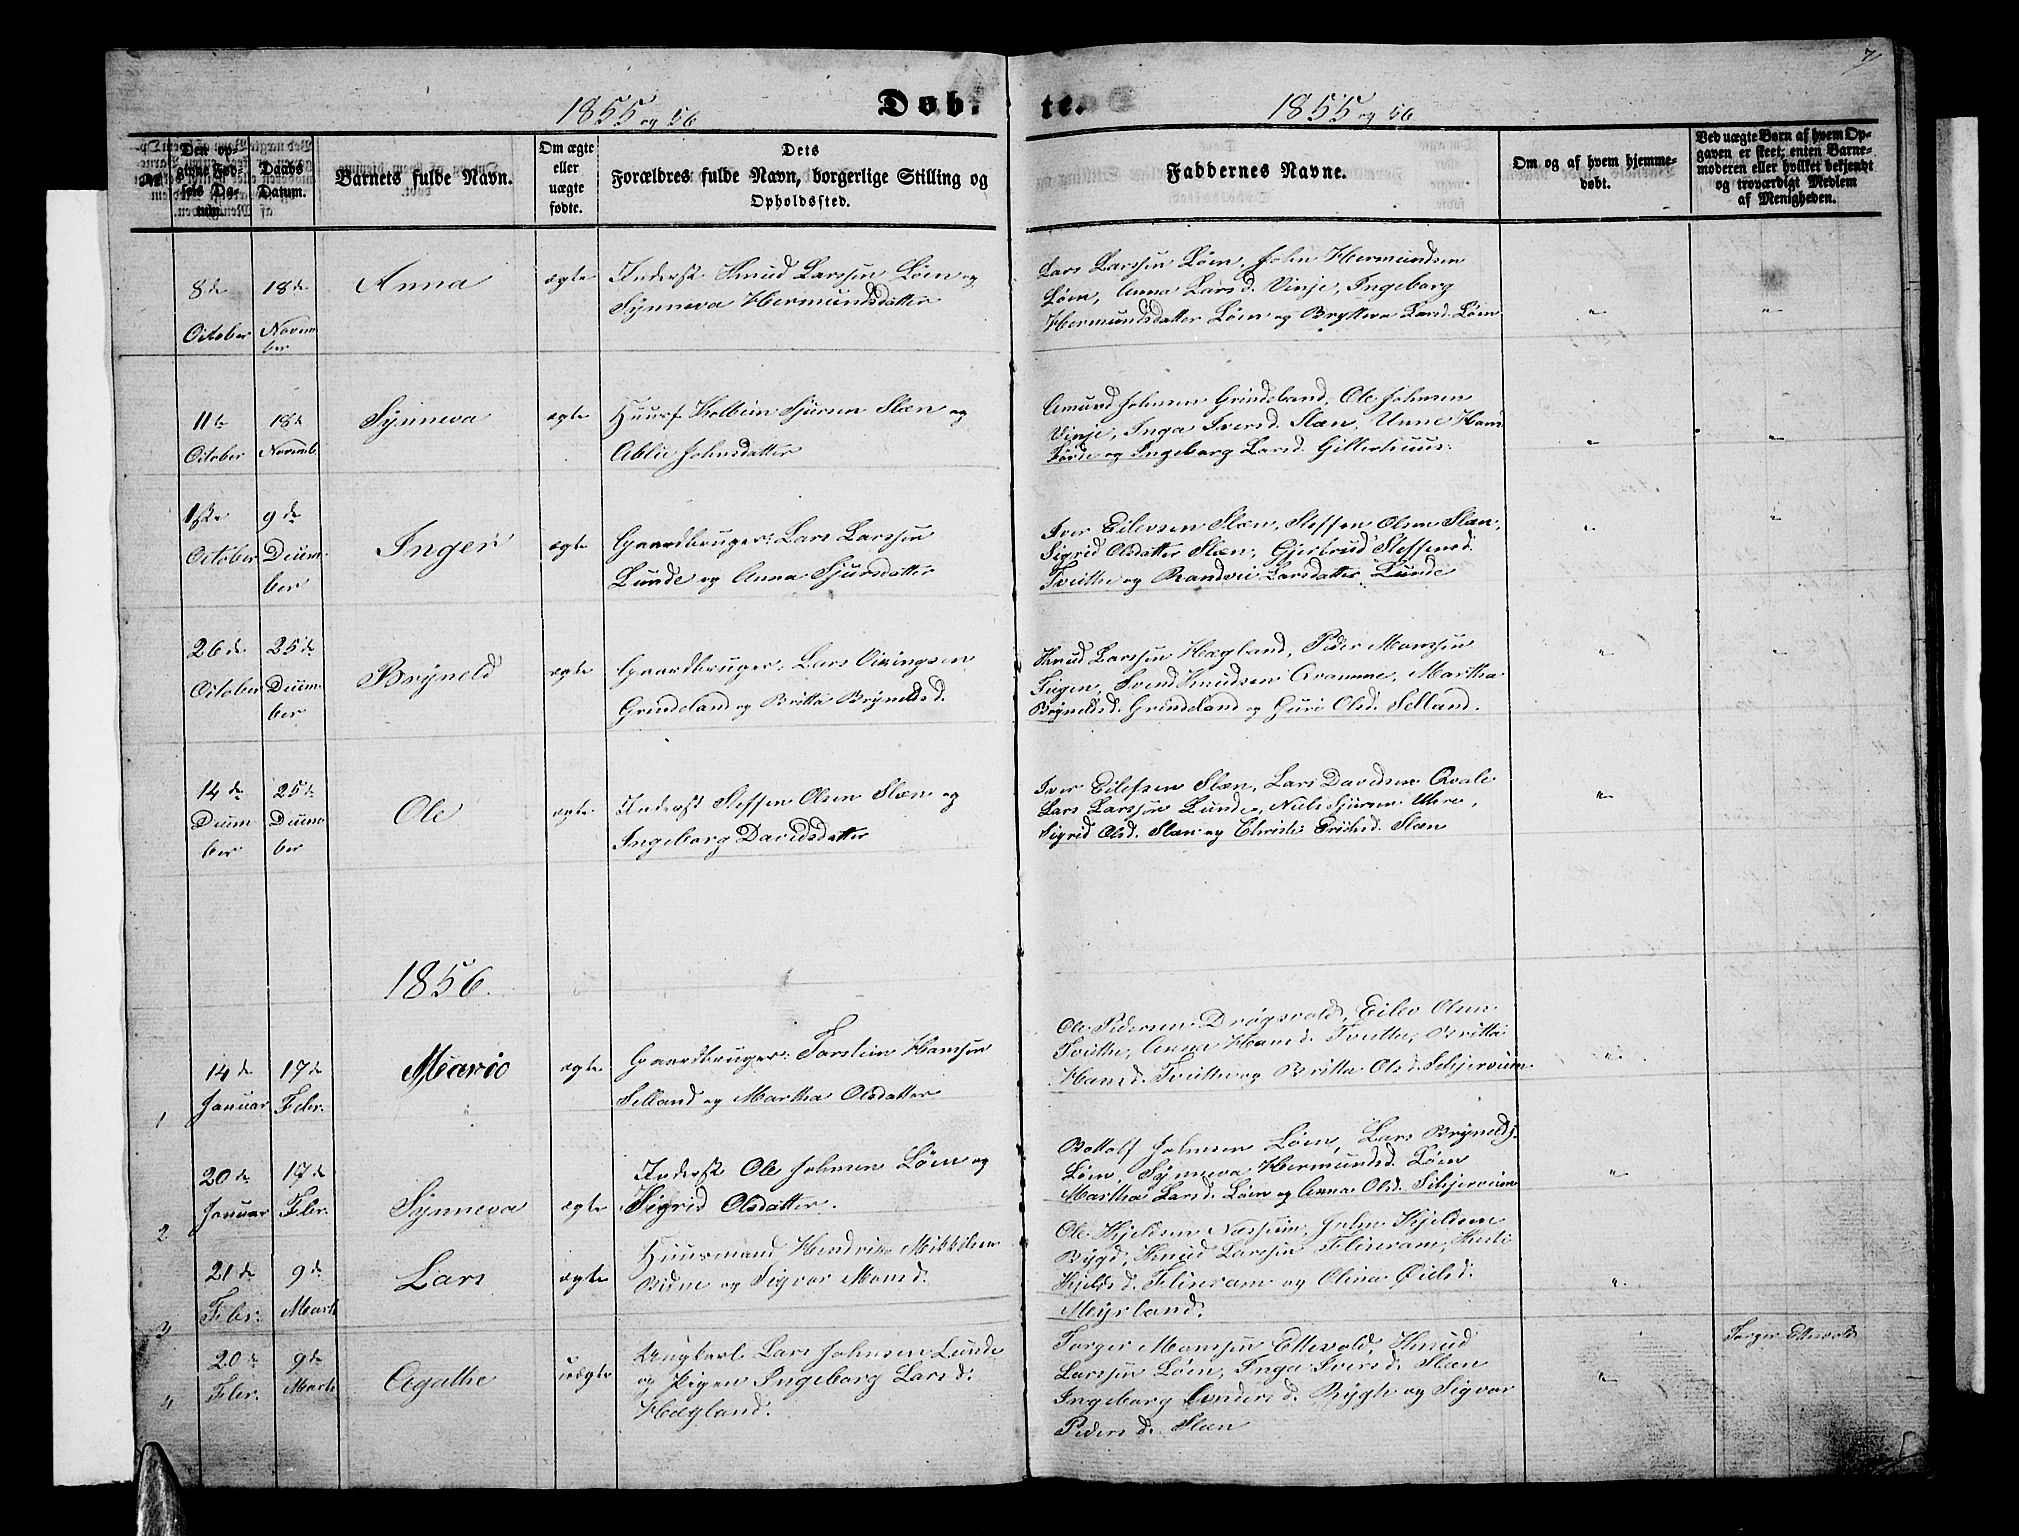 7
1855 og 56
Døb-
te.
1855 og 56
No.
Den op-
givne Fød-
sels Da-
tum.
Daabs
Datum.
Barnets fulde Navn.
Om ægte
eller
uægte
fødte.
Dets
Forældres fulde Navn, borgerlige Stilling og
Opholdssted.
Faddernes Navne.
Om og af hvem hjemme-
døbt.
Ved uægte Børn af hvem Op-
gaven er skeet; enten Barne-
moderen eller hvilket bekjendt
og troværdigt Medlem
af Menigheden.
8de
October
18de
Novem
ber
Anna
ægte
Inderst Knud Larssen Løen og
Synneva Hermundsdatter
Lars Larssen Løen, John Hermundsen
Løen, Anna Larsd. Vinje, Ingeborg
Hermundsdatter Løen og Brytteva Larsd. Løen
11te
October
18de
Novemb.
Synneva
ægte
Huusf. Kolbein Sjursen Slæn og
Ablie Johnsdatter
Amund Johnsen Grindeland, Ole Johnsen
Vinje, Inga Iversd. Slæn, Unne Hans
Førde og Ingeborg Larsd. Gillerhuus.
1ste
October
9de
Decem-
ber
Inger
ægte
Gaardbruger: Lars Larssen
Lunde og Anna Sjursdatter
Iver Eilevsen Slæn, Steffen Olsen Slæn,
Sigrid Olsdatter Slæn, Gjertrud Steffensd.
Tvithe og Randvei Larsdatter Lunde
26de
October
25de
Decem-
ber
Bryneld
ægte
Gaardbruger: Lars Vikingsen
Grindeland og Britta Bryneldsd.
Knud Larssen Hagland, Peder Monssen
Tugen, Svend Knudsen Qvamme, Martha
Bryneldsd. Grindeland og Guro Olsd. Selland.
14de
Decem-
ber
25de
Decem-
ber
Ole
ægte
Inderst Steffen Olsen Slæn og
Ingeborg Davidsdatter
Iver Eilefsen Slæn, Lars Davidsen Qvale
Lars Larssen Lunde, Niels Sjursen Uhre,
Sigrid Olsd. Slæn og Christi Erichsd. Slæn
1856.
1
14de
Januar
17de
Febr.
Mario
ægte
Gaardbruger: Torstein Hanssen
Selland og Martha Olsdatter
Ole Pedersen Drøgsvold, Eilev Olsen
Tvitthe, Anna Hansd. Tvitthe, Britta
Hansd. Tvitthe og Britta Olsd. Schjerveim
2
20de
Januar
17de
Febr.
Synneva
ægte
Inderst Ole Johnsen Løen og
Sigrid Olsdatter.
Bottolf Johnsen Løen, Lars Brynelds.
Løen, Synneva Hermundsd. Løen
Martha Larsd. Løen og Anna Olsd. Schjerveim
3
21de
Febr.
9de
Marts
Lars
ægte
Huusmand Hendrik Mikkelsen
Bidne og Sigvor Monsd.
Ole Kjeldsen Næsheim, John Kjeldsen
Bygd, Knud Larssen Flisram, Kari
Kjeldsd. Flisram og Olina Øielsd.
Meyrland.
4
20de
Febr.
9de
Marts
Agathe
uægte
Ungkarl Lars Johnsen Lunde
og Pigen Ingeborg Larsd.
Hagland.
Torger Monssen Ettevold, Knud
Larssen Løen, Inga Iversd. Slæn
Ingeborg Andersd. Bygh og Sigvor
Pedersd. Slæn
Torger Ettevold